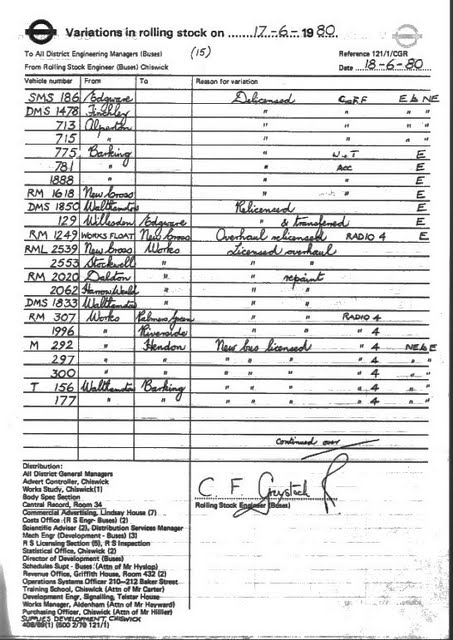 Variations in rolling stock on 17-6-1980
To All District Engineering Managers (Buses) (15) Reference 121/1/CGR
From Rolling Stock Engineer (Buses) Chiswick Date 18-6-80
Vehicle number From To Reason for variation
SMS 186 Edgware Delicensed CofF E & NE
DMS 1478 Finchley " " " "
713 Alperton " " " "
715 " " " " "
775 Barking " W&T E
781 " " Acc E
1888 " " " E
RM 1618 New Cross " " E
DMS 1850 Walthamstow Relicensed E
129 Willesden Edgware " & transferred E
RM 1249 WORKS FLOAT New Cross Overhaul relicensed RADIO 4 E
RML 2539 New Cross Works Licensed overhaul
2553 Stockwell " " "
RM 2020 Dalston " " repaint
2062 Harrow Weald " " "
DMS 1833 Walthamstow " " "
RM 307 Works Palmers Green " " RADIO 4
1996 " Riverside " " " 4
M 292 Hendon New bus licensed " 4 NE & E
297 " " " " " 4 " "
300 " " " " " 4 " "
T 156 Walthamstow Barking " " " 4 " "
177 " " " " " 4 " "
continued over
Distribution:
All District General Managers
Advert Controller, Chiswick
Works Study, Chiswick(1)
Body Spec Section
Central Record, Room 34
Commercial Advertising, Lindsay House (7)
Costs Office (R S Engr- Buses) (2)
Scientific Adviser (2), Distribution Services Manager
Mech Engr (Development - Buses) (3)
R S Licensing Section (5), R S Inspection
Statistical Office, Chiswick (2)
Director of Development (Buses)
Schedules Supt - Buses (Attn of Mr Hyslop)
Revenue Office, Griffith House, Room 432 (2)
Operations Systems Officer 210-212 Baker Street
Training School, Chiswick (Attn of Mr Carter)
Development Engr, Signalling, Telstar House
Works Manager, Aldenham (Attn of Mr Hayward)
Purchasing Officer, Chiswick (Attn of Mr Hillier)
SUPPLIES DEVELOPMENT, CHISWICK
408/BR(1) (500 2/79 121/1)
C F Greystock
Rolling Stock Engineer (Buses)